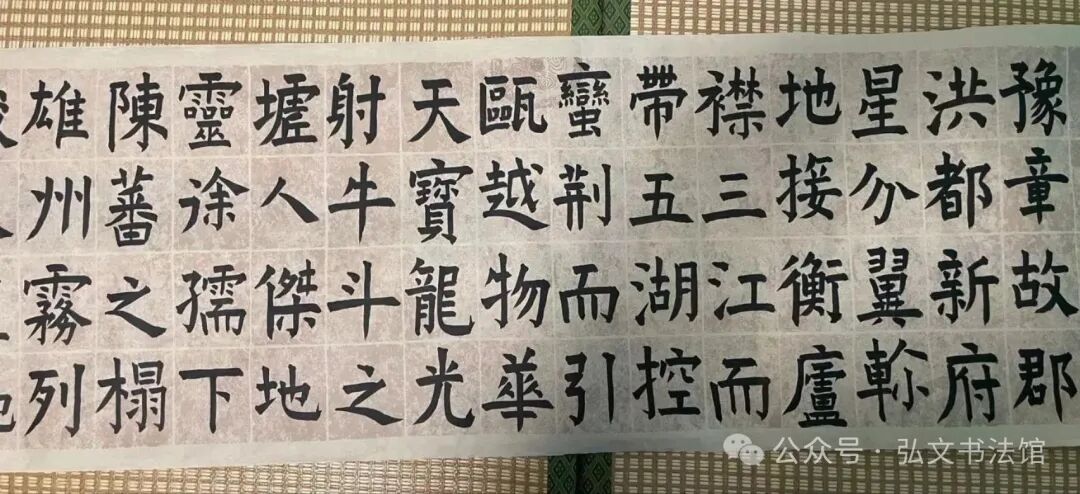 豫章故郡
洪都新府
星分翼軫
地接衡廬
襟三江而
帶五湖控
蠻荆而引
甌越物華
天寶龍光
射牛斗之
墟人傑地
靈徐孺下
陳蕃之榻
雄州霧列
公众号 · 弘文书法馆